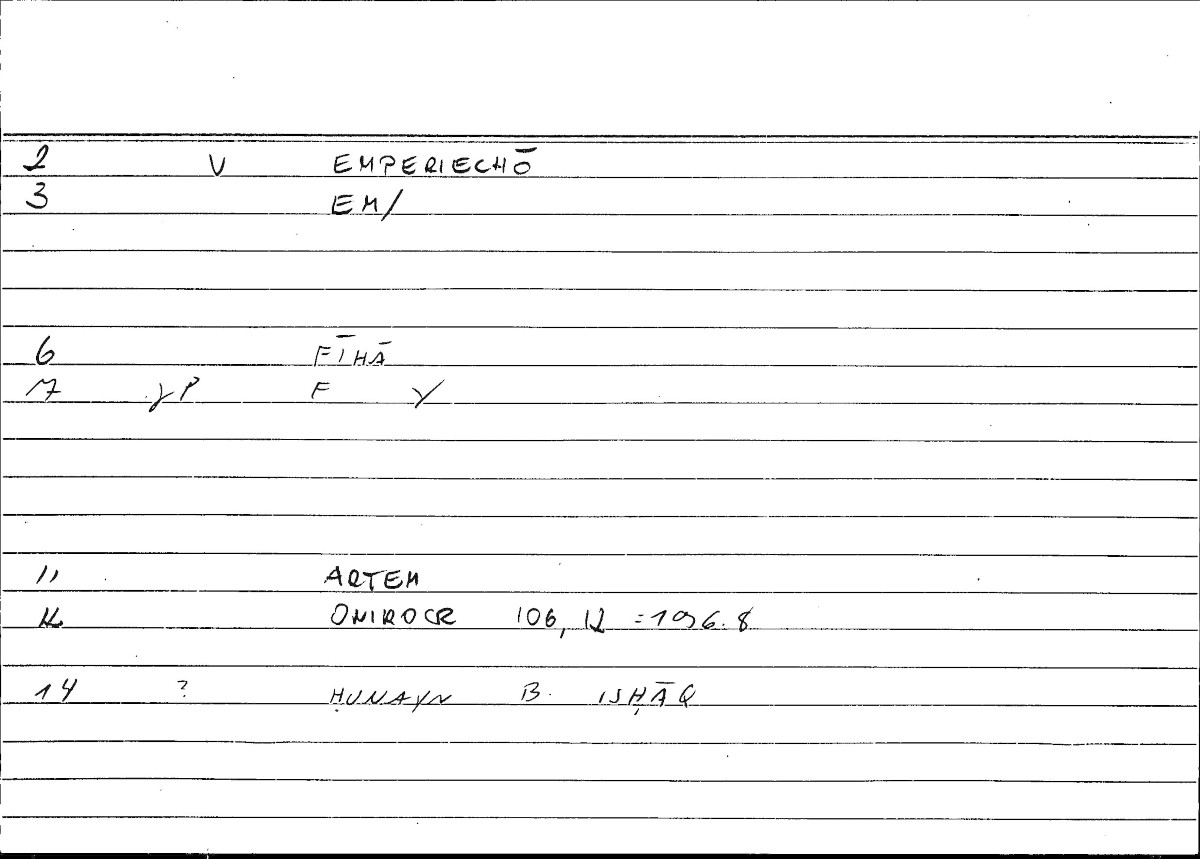 2 V EMPERIECHŌ
3 EM/
6 FĪHĀ
7 γP F γ
11 ARTEM
12 ONIROCR 106, 12 = 196.8
14 ? ḤUNAYN B. ISḤĀQ